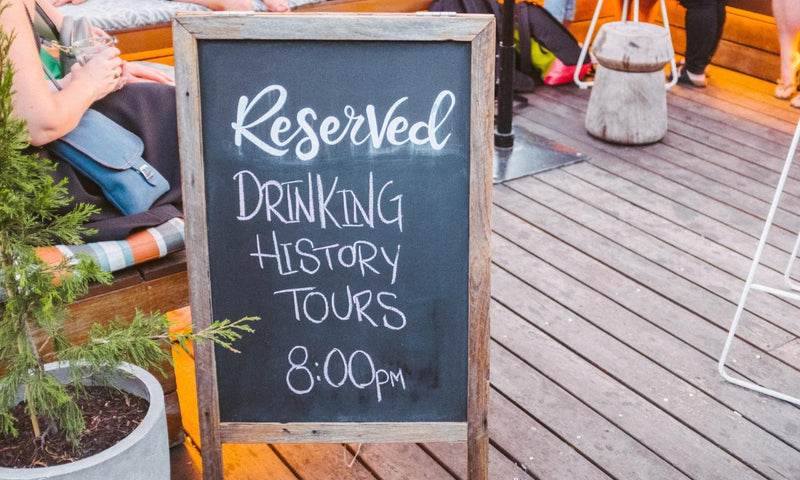 Reserved
DRINKING
HISTORY
TOURS
8:00PM